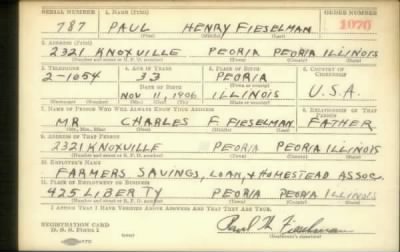 SERIAL NUMBER 1. NAME (Print) ORDER NUMBER
787 PAUL HENRY FIESELMAN 1070
(First) (Middle) (Last)
2. ADDRESS (Print)
2321 KNOXVILLE PEORIA PEORIA ILLINOIS
(Number and street or R. F. D. number) (Town) (County) (State)
3. TELEPHONE 4. AGE IN YEARS 5. PLACE OF BIRTH 6. COUNTRY OF CITIZENSHIP
2-1054 33 PEORIA
DATE OF BIRTH (Town or county)
NOV 11, 1906 ILLINOIS U.S.A.
(Exchange) (Number) (Mo.) (Day) (Yr.) (State or country)
7. NAME OF PERSON WHO WILL ALWAYS KNOW YOUR ADDRESS 8. RELATIONSHIP OF THAT PERSON
MR. CHARLES F. FIESELMAN FATHER
(Mr., Mrs., Miss) (First) (Middle) (Last)
9. ADDRESS OF THAT PERSON
2321 KNOXVILLE PEORIA PEORIA ILLINOIS
(Number and street or R. F. D. number) (Town) (County) (State)
10. EMPLOYER'S NAME
FARMERS SAVINGS, LOAN, & HOMESTEAD ASSOC.
11. PLACE OF EMPLOYMENT OR BUSINESS
425 LIBERTY PEORIA PEORIA ILLINOIS
(Number and street or R. F. D. number) (Town) (County) (State)
I AFFIRM THAT I HAVE VERIFIED ABOVE ANSWERS AND THAT THEY ARE TRUE.
REGISTRATION CARD
D. S. S. Form 1
Paul H. Fieselman
(Registrant's signature)